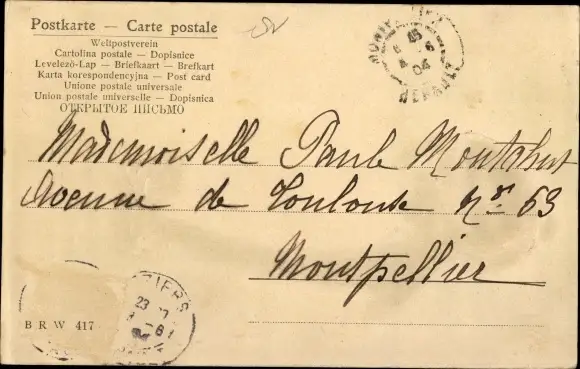 Postkarte — Carte postale
Weltpostverein
Cartolina postale — Dopisnice
Levelező-Lap — Briefkaart — Brefkart
Karta korespondencyjna — Post card
Unione postale universale
Union postale universelle — Dopisnica
ОТКРЫТОЕ ПИСЬМО
MONTPELLIER
HERAULT
04
Mademoiselle Paule
Avenue de Toulouse nr. 63
Montpellier
ZIERS
23
B R W 417